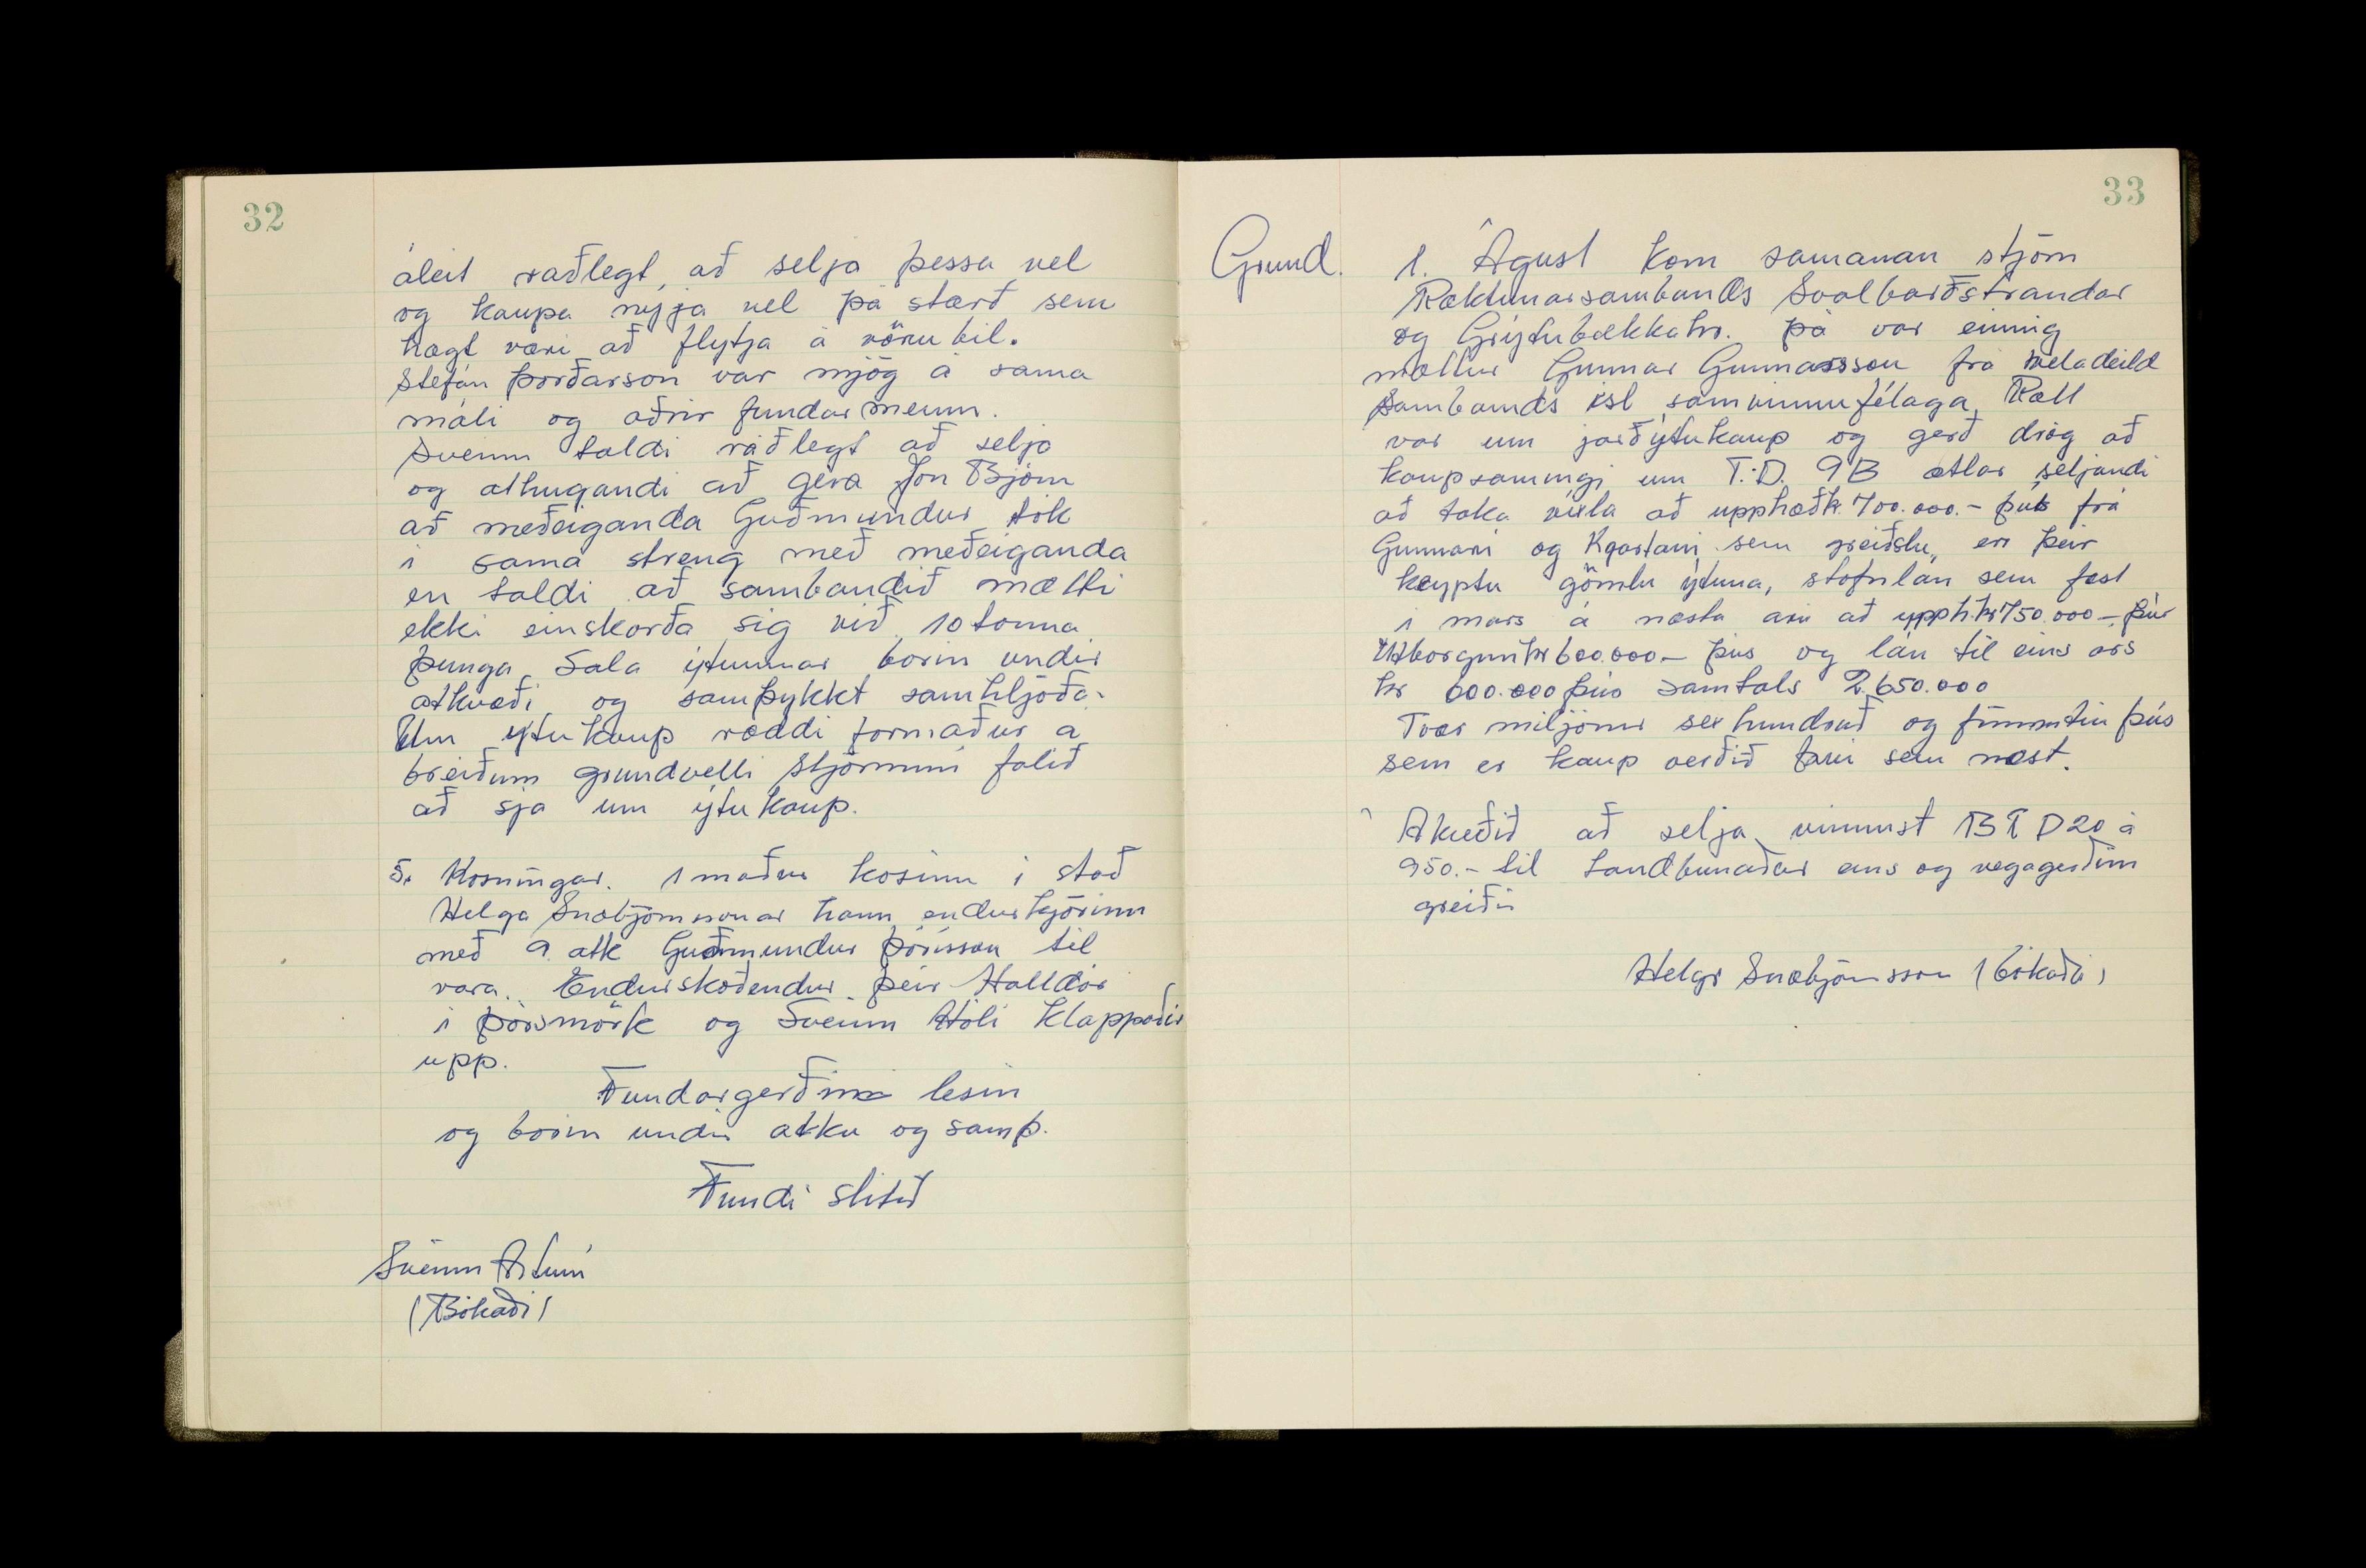 32
áleit raðlegt, að selja þessa vel
og kaupa nyja vel þá stærð sem
hægt væri að flytja á vörubil.
Stefán Þorðarson var mjög á sama
máli og aðrir fundarmenn.
Sveinn taldi ráðlegt að selja
og athugandi að gera Jón Björn
að meðeiganda Guðmundur tók
i sama streng með meðeiganda
en taldi að sambandið mætti
ekki einskorða sig við 10 tonna
þunga. Sala ýtunnar borin undir
atkvæði og samþykkt samhljóða.
Um ýtukaup ræddi formaður a
breiðum grundvelli stjórninni falið
að sjá um ýtukaup.
5. Kosningar. 1 maður kosinn i stað
Helga Snæbjörnssonar hann endurkjörinn
með 9 atk Guðmundur Þórisson til
vara. Endurskoðendur þeir Halldór
i Þórsmörk og Sveinn Hóli klappaðir
upp.
Fundargerðin lesin
og borin undir atkv og samþ.
Fundi slitið
Sveinn
(Bókaði)
33
Grund. 1. Águst kom samanan stjórn
Ræktunarsambands Svalbarðstrandar
og Grýtubakkahr. þá var einnig
mættur Gunnar Gunnarsson frá veladeild
Sambands isl samvinnufélaga. Rætt
var um jarðýtukaup og gerð drög að
kaupsamingi um T.D. 9B ætlar seljandi
að taka vixla að upphæð kr. 700.000.- þús frá
Gunnari og Kjartani sem greiðslu, er þeir
keyptu gömlu ýtuna, stofnlán sem fæst
i mars á næsta ari að upph. kr 750.000 - þús
Utborgun kr 600.000 - þús og lán til eins ars
kr 600.000 þús samtals 2.650.000
Tvær miljónir sex hundruð og fimmtiu þús
sem er kaup verðið þvi sem næst.
Akveðið að selja vinnust BT D20 á
950.- til Landbunaðar eins og vegagerðin
greiðir
Helgi Snæbjörnsson (bókaði)